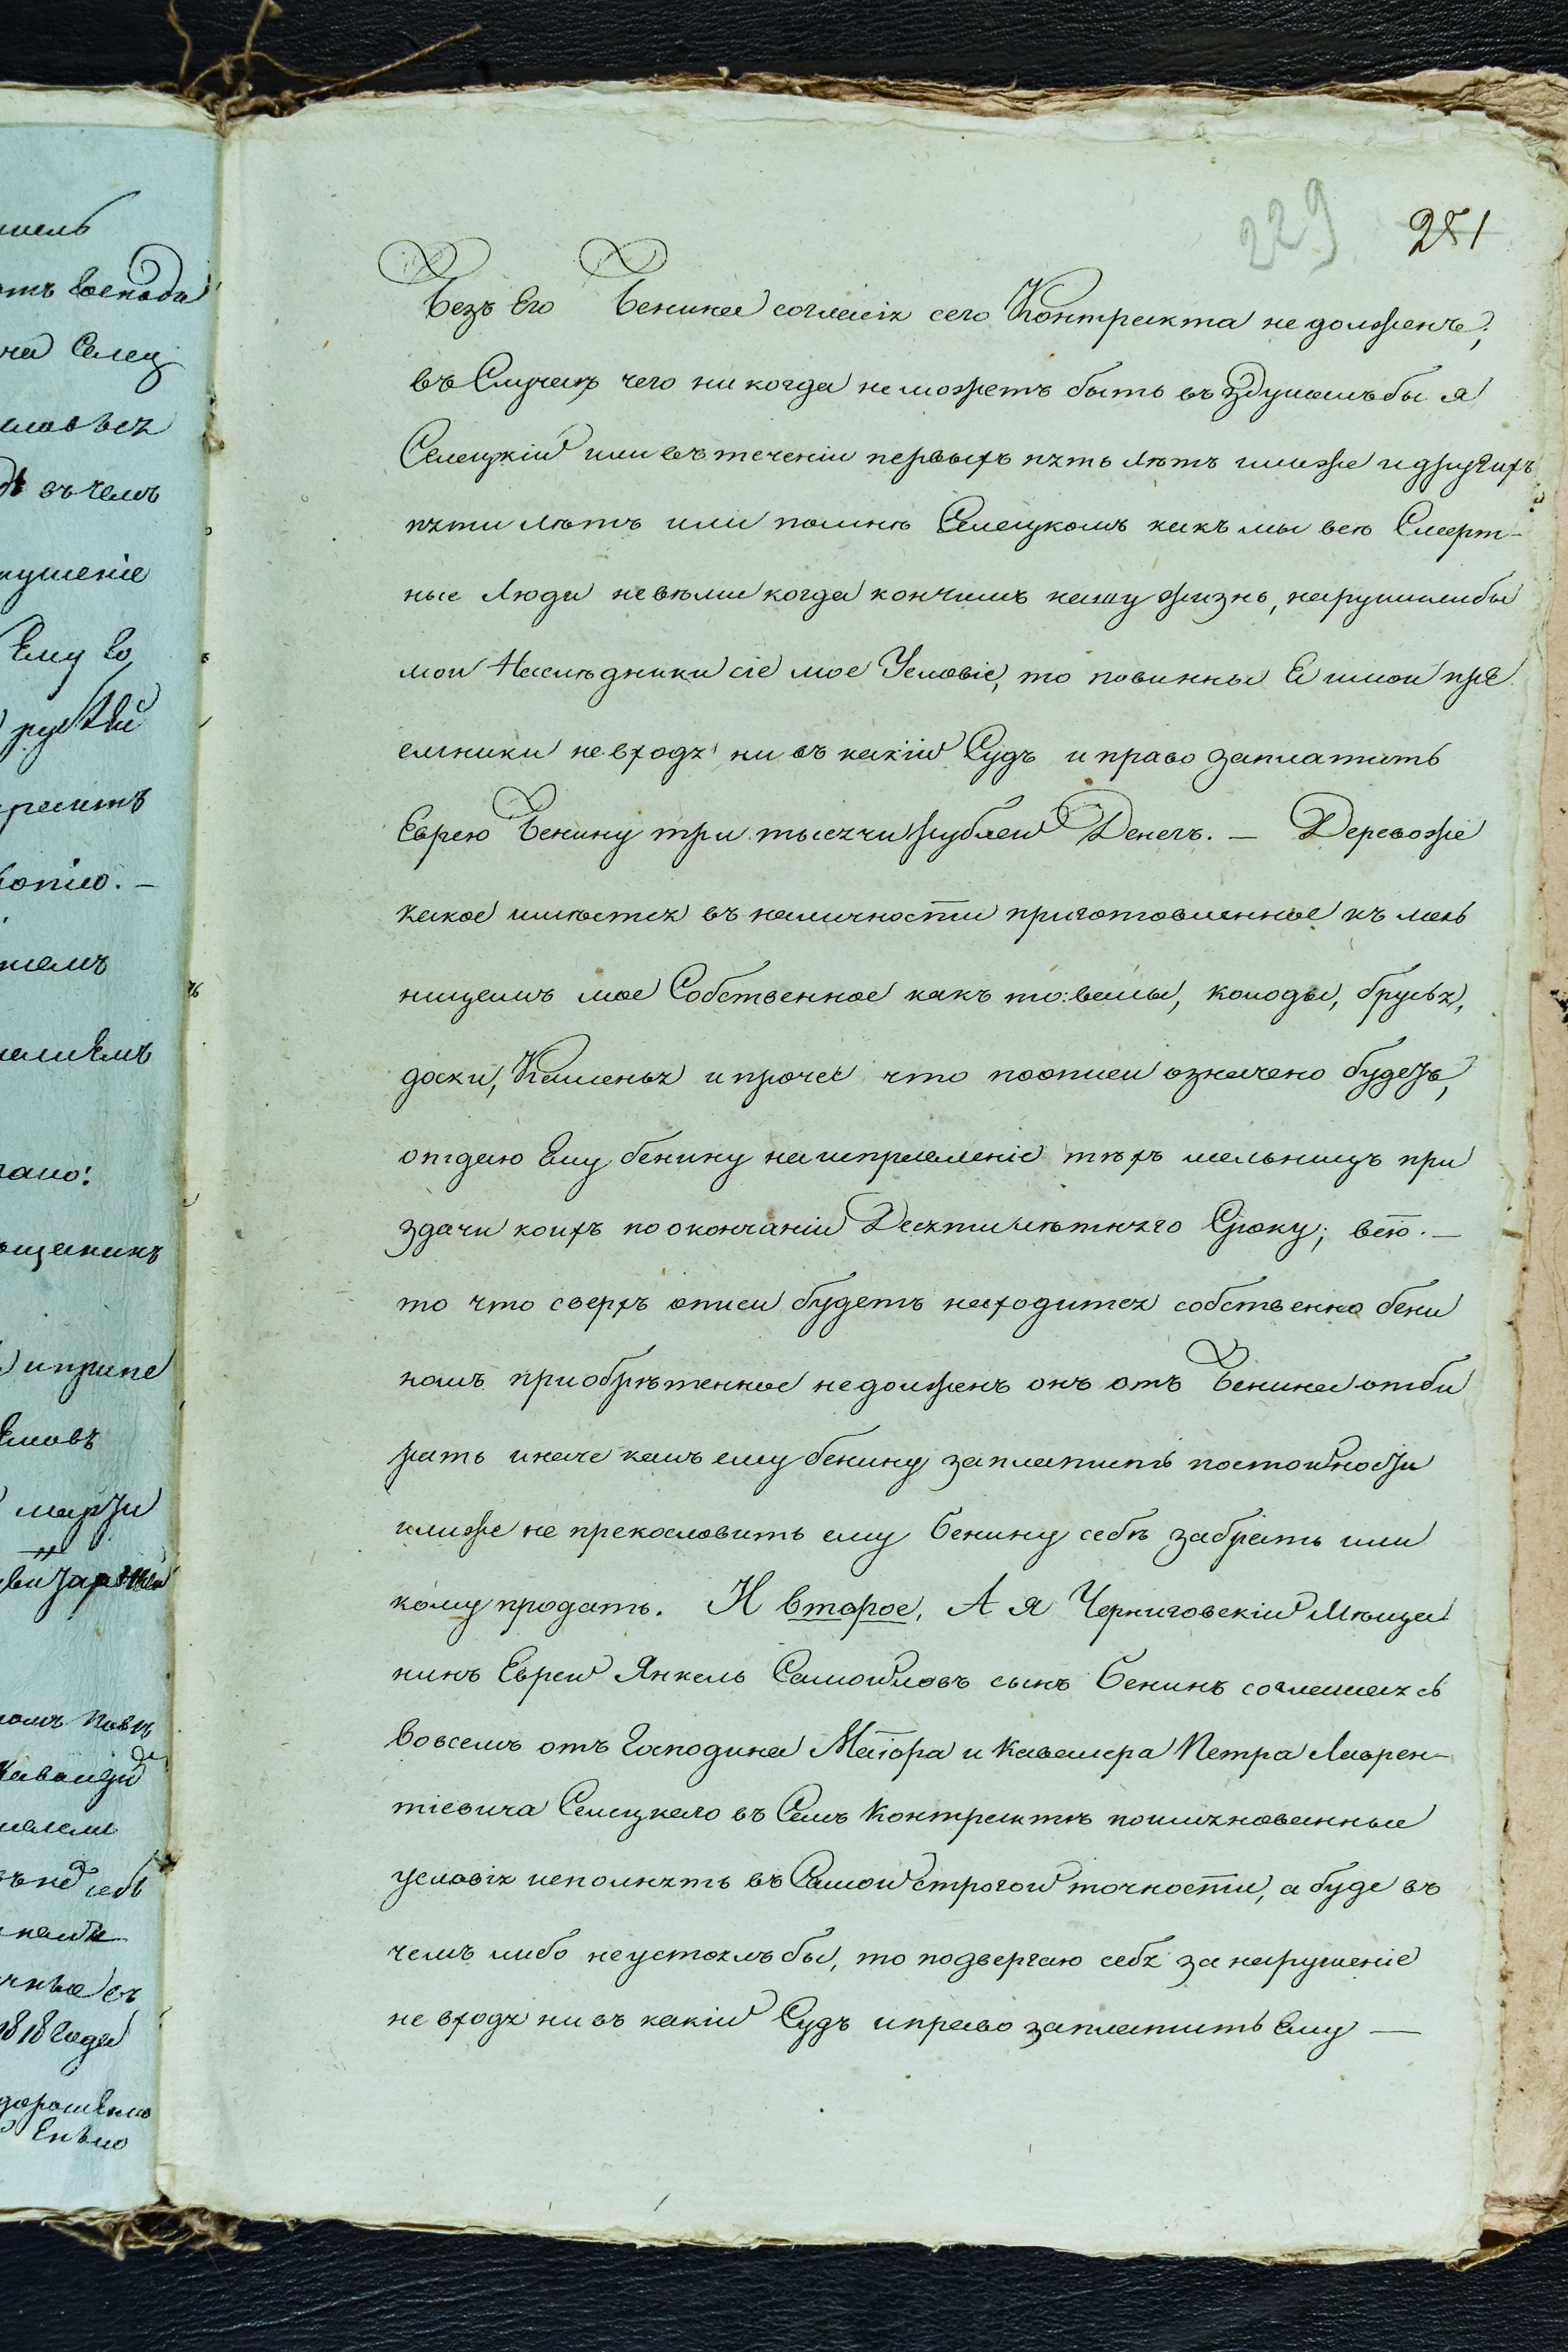 229 251
Безъ Его Бенина согласія сего Контракта не долженъ;
въ Случаѣ чего ни когда неможетъ быть въ здумалъбы я
Селецкій или въ теченіи первыхъ пять лѣтъ илиже и другихъ
пяти лѣтъ или помнѣ Селецкомъ какъ мы всѣ Смерт-
ные Люди невѣмы когда кончимъ нашу жизнь, нарушилибы
мои Наслѣдники сіе мое Условіе, то повинны Я имои пре
емники невходя ни въ какій Судъ и право заплатить
Еврею Бенину три тысячи рублей Денегъ. — Деревоже
какое имѣется въ наличности приготовленное къ мель
ницамъ мое Собственное какъ то: валы, колоды, брусья,
доски, Каменья и прочее что поописи означено будетъ,
отдаю Ему бенину наисправленіе тѣхъ мельницъ при
здачи коихъ по окончаніи Десятилѣтняго Сроку; всіо. —
то что сверхъ описи будетъ находится собственно бени
номъ приобрѣтенное недолженъ онъ отъ Бенина отби
рать иначе какъ ему бенину заплатить постоимости
илиже не прекословить ему Бенину себѣ забрать или
кому продать. И второе, А я Черниговскій Мѣща
нинъ Еврей Янкель Самойловъ сынъ Бенинъ соглашаясь
вовсемъ отъ Господина Маіора и Кавалера Петра Лаврен-
тіевича Селецкаго въ Семъ Контрактѣ поимянованные
условія исполнять въ Самой строгой точности, а буде въ
чемъ либо неустоялъбы, то подвергаю себя за нарушеніе
не входя ни въ какій Судъ и право заплатить Ему —